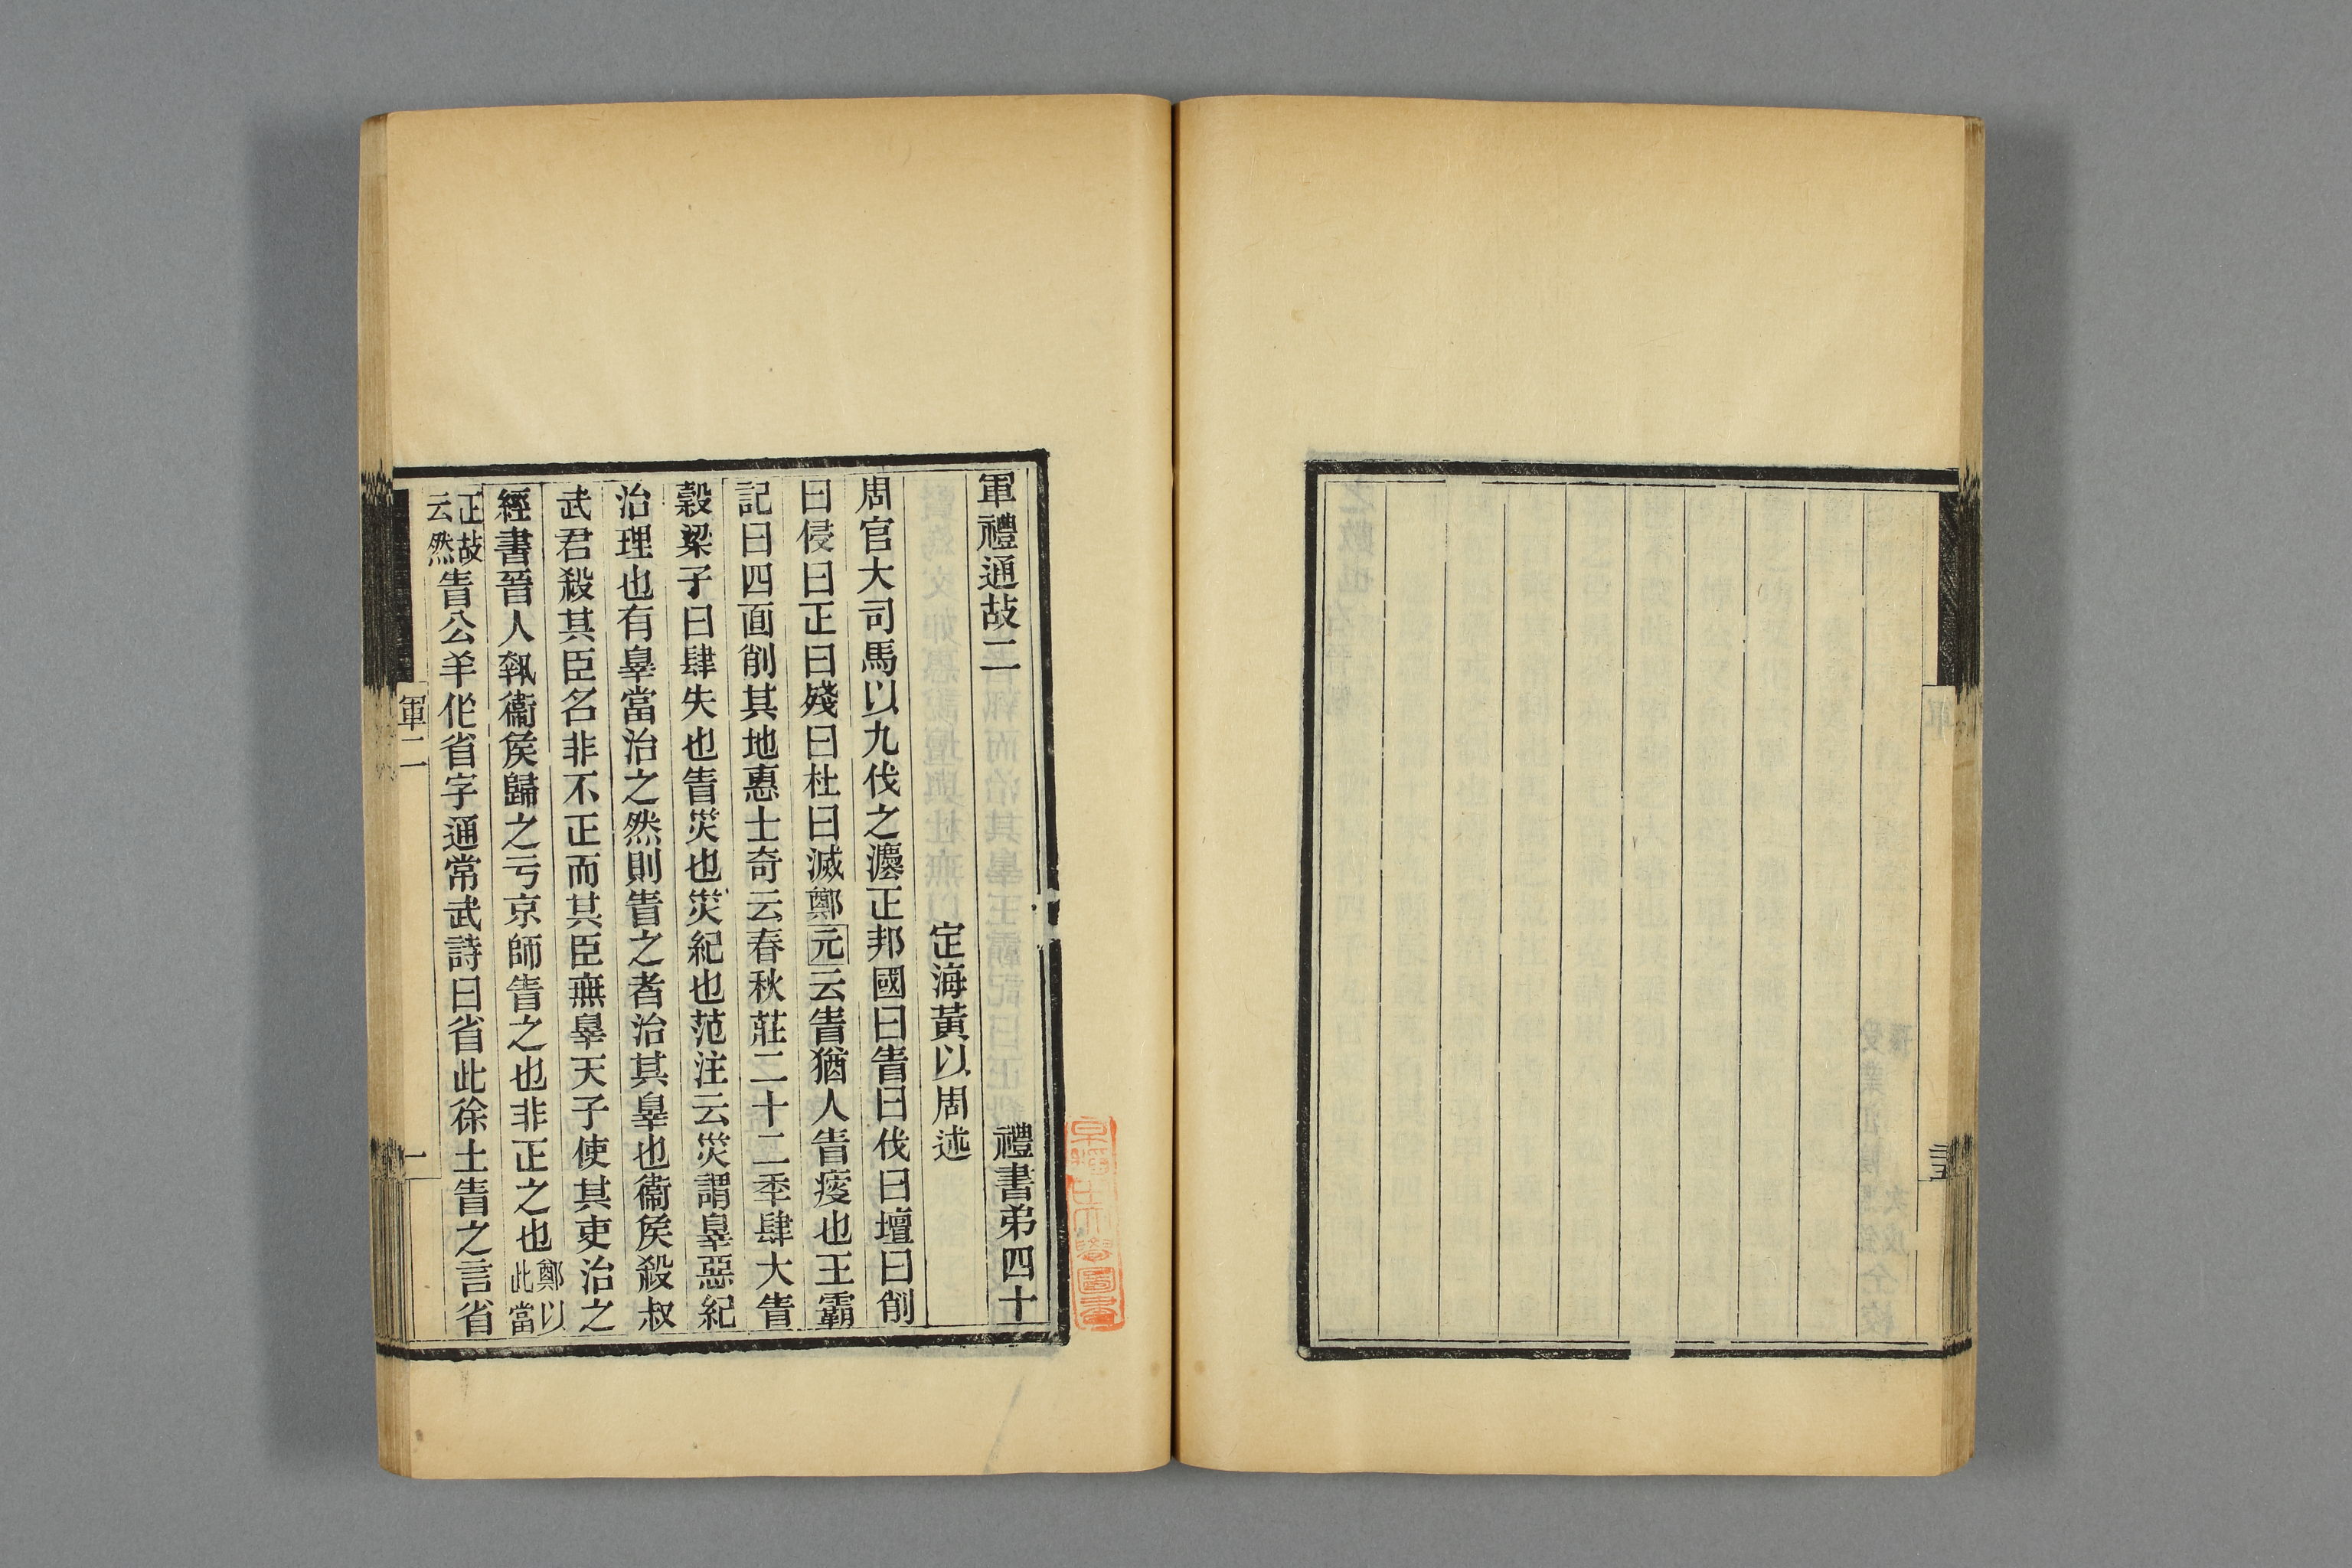 軍禮通故二　禮書弟四十
定海黃以周述
周官大司馬以九伐之灋正邦國曰眚曰伐曰壇曰削
曰侵曰正曰殘曰杜曰滅鄭元云眚猶人眚瘦也王霸
記曰四面削其地惠士奇云春秋莊二十二秊肆大眚
穀梁子曰肆失也眚災也災紀也范注云災謂辠惡紀
治理也有辠當治之然則眚之者治其辠也衞矦殺叔
武君殺其臣名非不正而其臣無辠天子使其吏治之
經書晉人執衞矦歸之亏京師眚之也非正之也鄭以此當
正故云然眚公羊作省字通常武詩曰省此徐土眚之言省
軍二
一